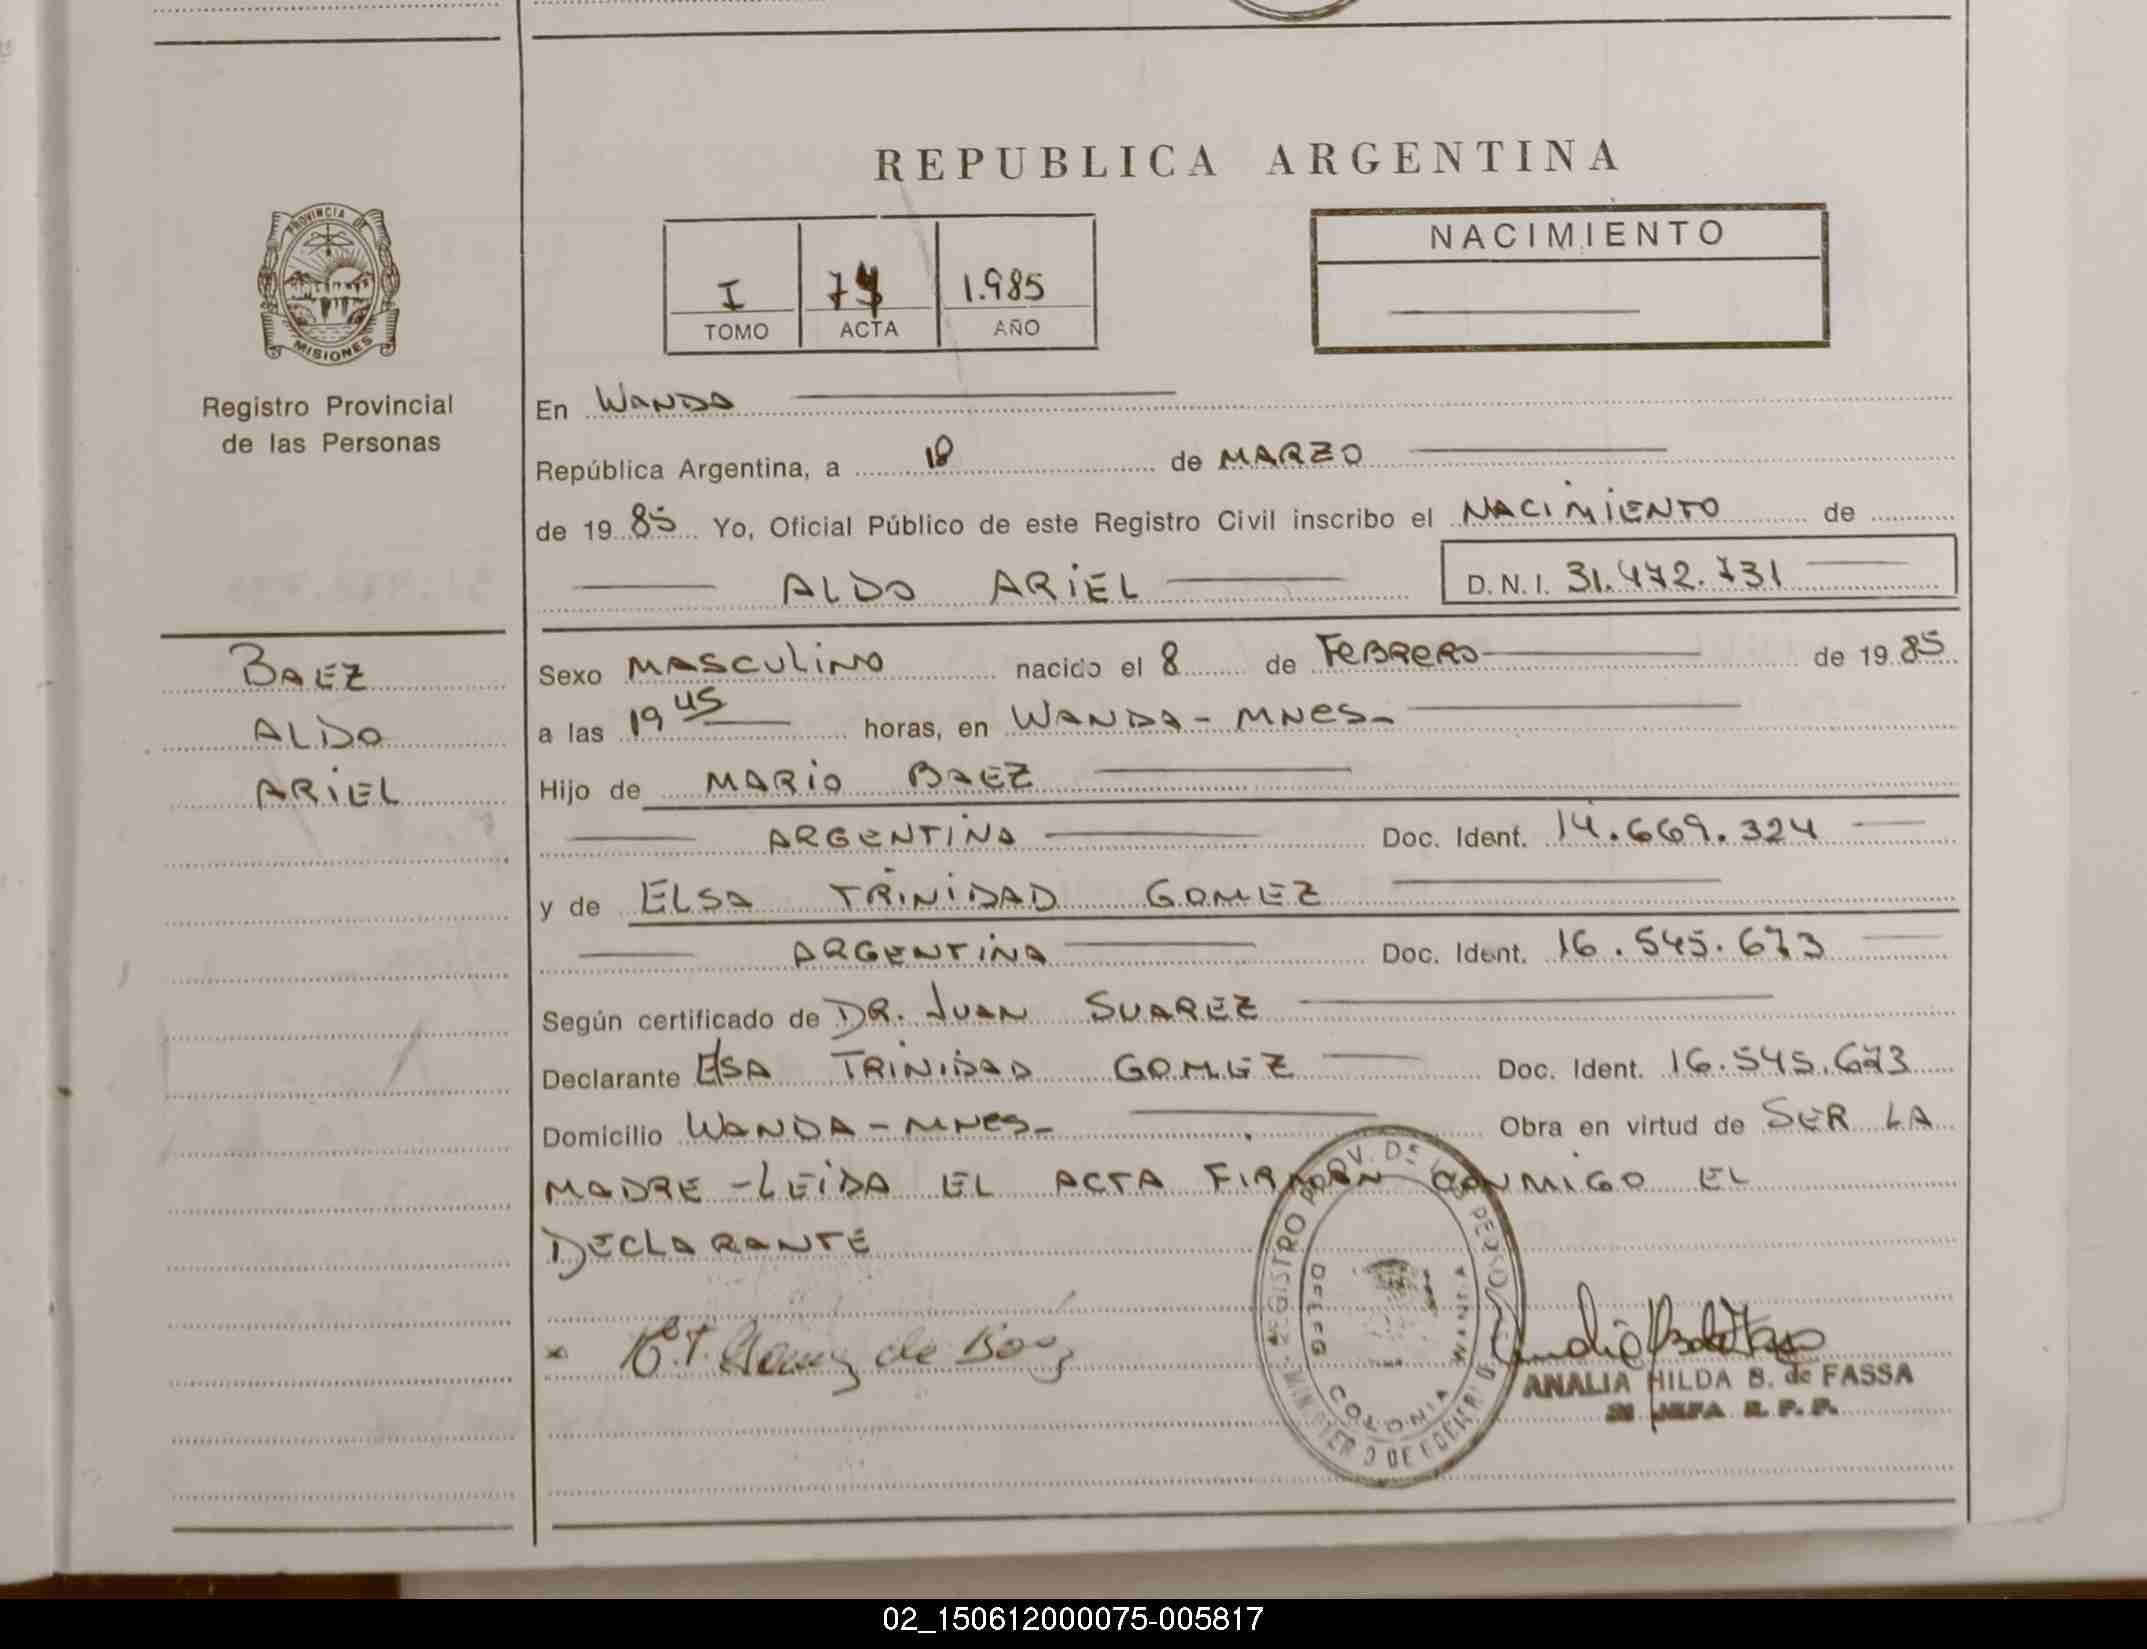 REPUBLICA ARGENTINA
PROVINCIA DE
MISIONES
Registro Provincial
de las Personas
NACIMIENTO
I 1.985
TOMO ACTA AÑO
En WANDA
República Argentina, a 18 de MARZO
de 19 85 Yo, Oficial Público de este Registro Civil inscribo el NACIMIENTO de
ALDO ARIEL D. N. I. 31.472.731
BAEZ
ALDO
ARIEL
Sexo MASCULINO nacido el 8 de FEBRERO de 19 85
a las 19 45 horas, en WANDA - MNES-
Hijo de MARIO BAEZ
ARGENTINA Doc. Ident. 14.669.324
y de ELSA TRINIDAD GOMEZ
ARGENTINA Doc. Ident. 16.545.673
Según certificado de DR. JUAN SUAREZ
Declarante ELSA TRINIDAD GOMEZ Doc. Ident. 16.545.673
Domicilio WANDA - MNES- Obra en virtud de SER LA
MADRE - LEIDA EL ACTA FIRMAN CONMIGO EL
DECLARANTE
x E.T. Gomez de Baez
REGISTRO PROV. DE
DELEG COLONIA WANDA
ANALIA HILDA B. de FASSA
JEFA R. P. P.
02_150612000075-005817